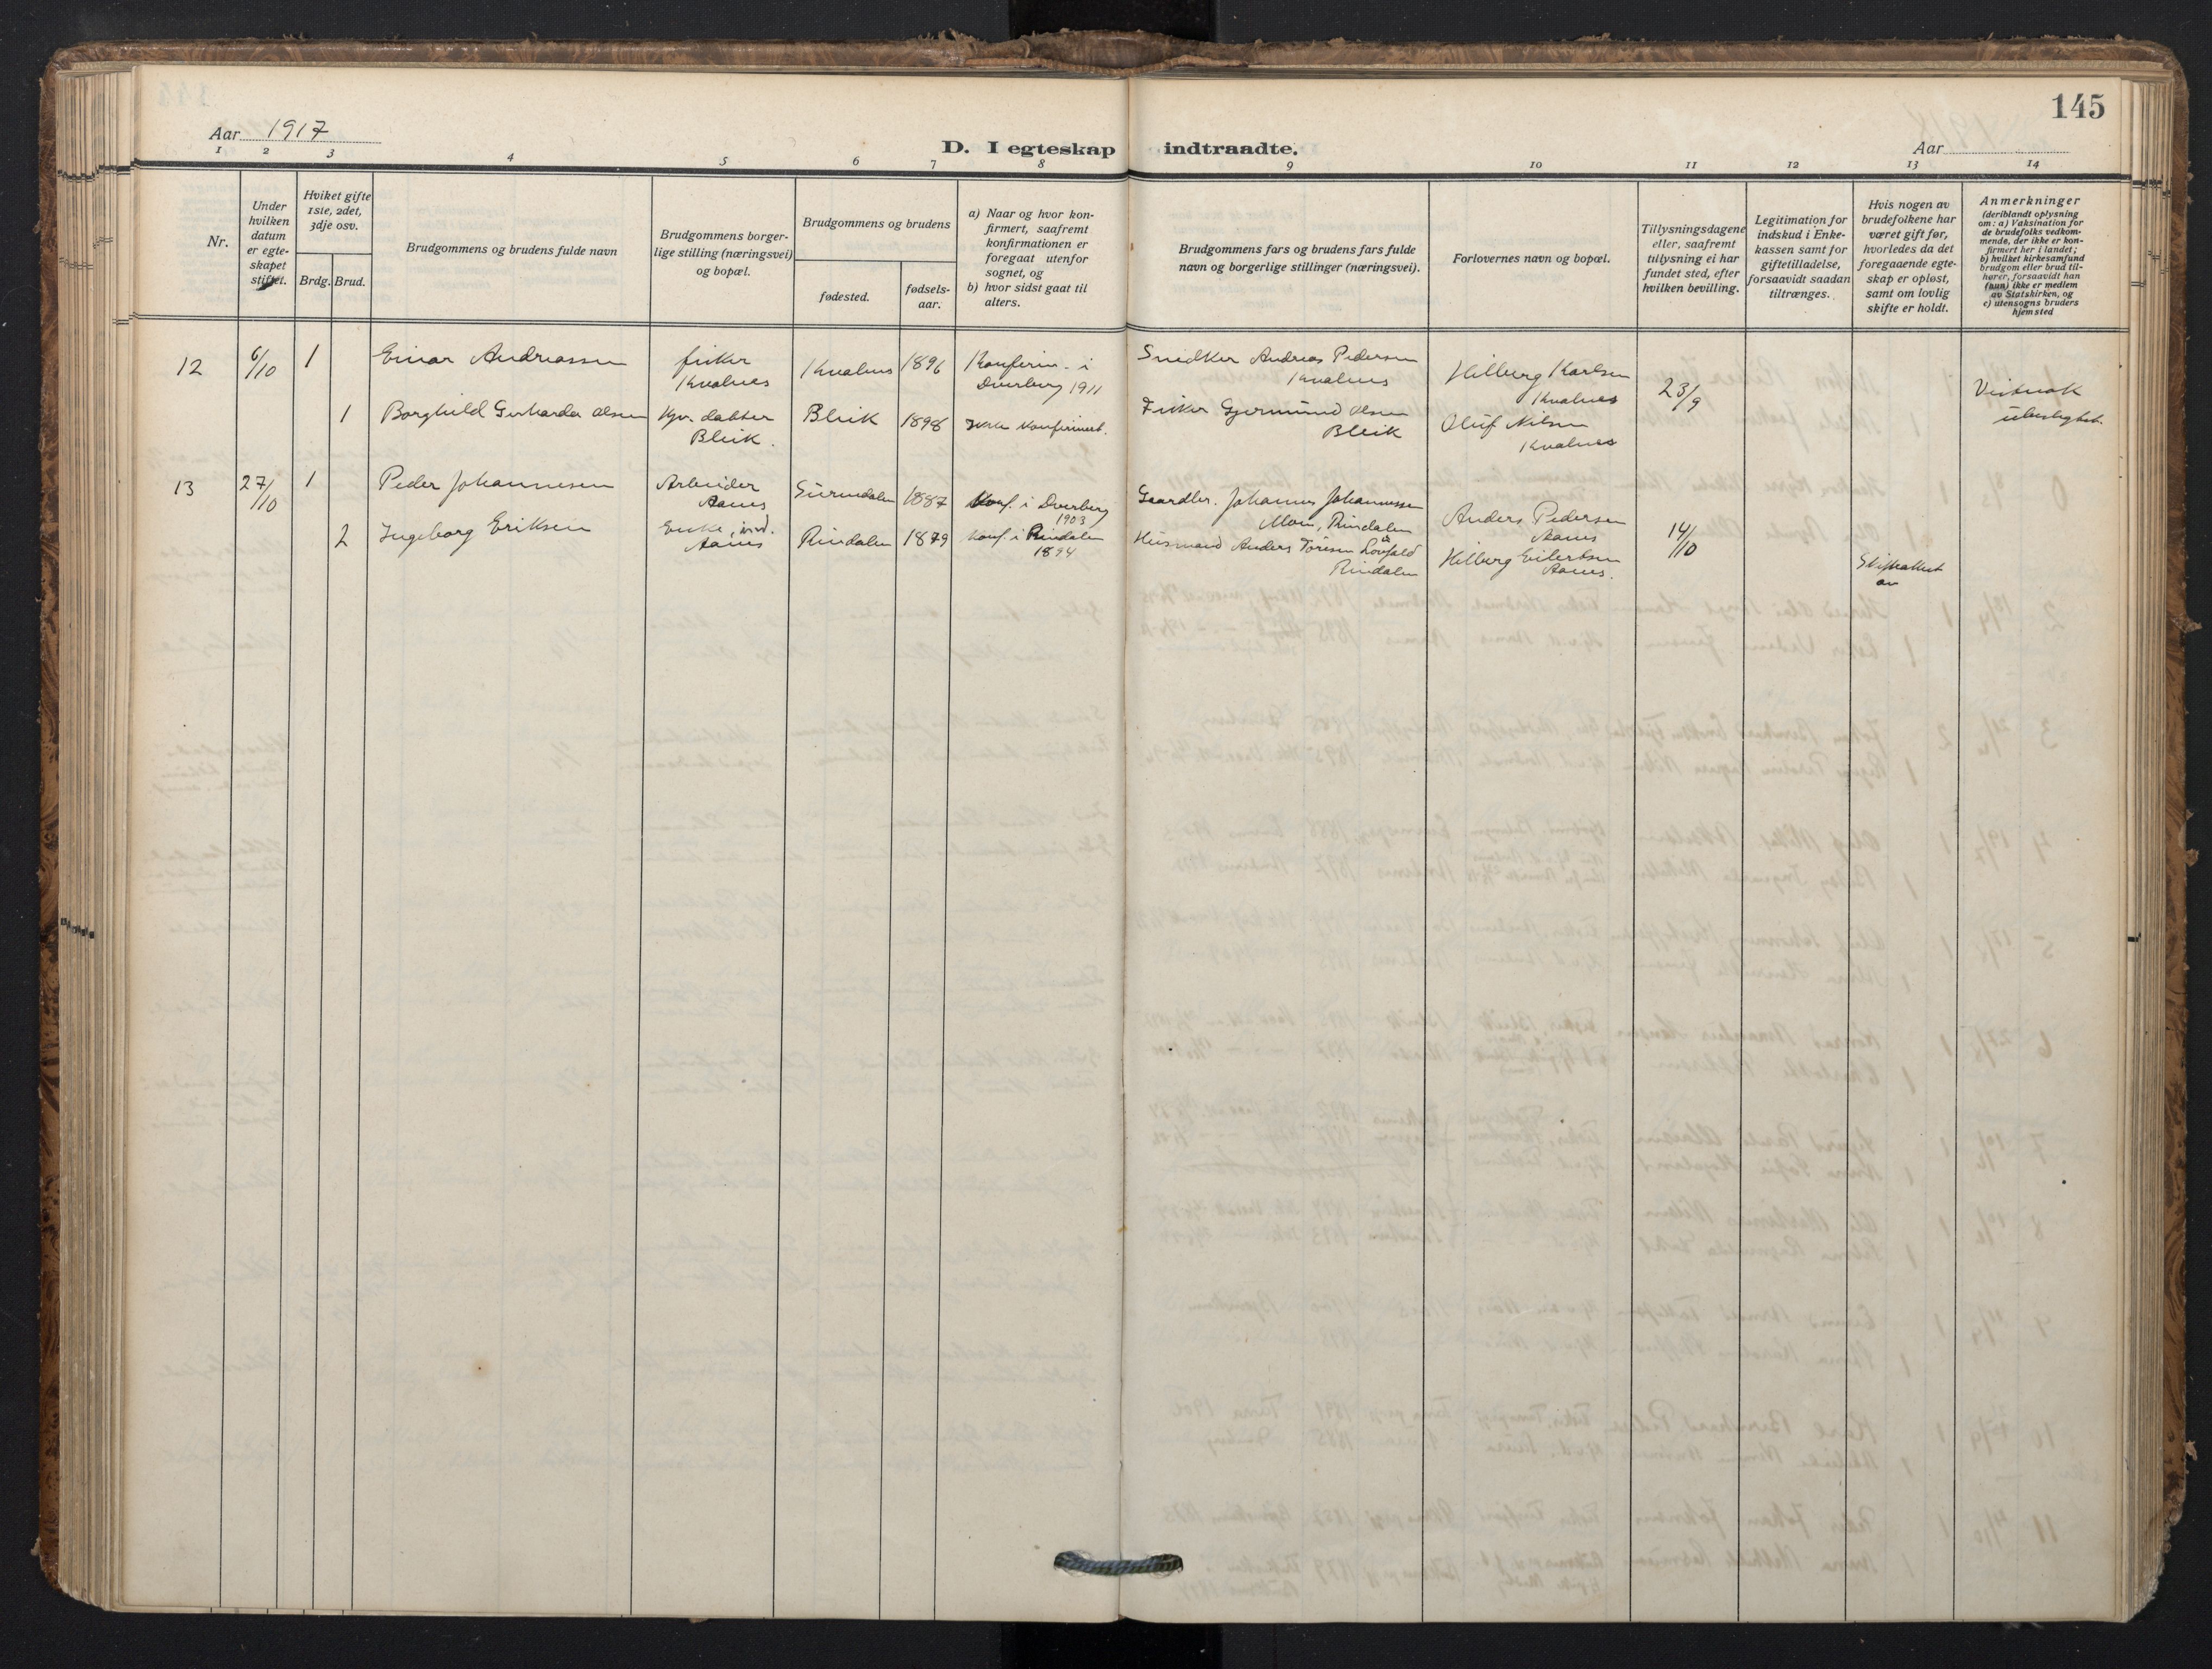 145
Aar 1917
D. I egteskap indtraadte.
Aar
1 2 3 4 5 6 7 8 9 10 11 12 13 14
Nr.
Under hvilken datum er egte-skapet stiftet.
Hviket gifte 1ste, 2det, 3dje osv.
Brdg. Brud.
Brudgommens og brudens fulde navn
Brudgommens borger-lige stilling (næringsvei) og bopæl.
Brudgommens og brudens
fødested.
fødsels-aar.
a) Naar og hvor kon-firmert, saafremt konfirmationen er foregaat utenfor sognet, og
b) hvor sidst gaat til alters.
Brudgommens fars og brudens fars fulde navn og borgerlige stillinger (næringsvei).
Forlovernes navn og bopæl.
Tillysningsdagene eller, saafremt tillysning ei har fundet sted, efter hvilken bevilling.
Legitimation for indskud i Enke-kassen samt for giftetilladelse, forsaavidt saadan tiltrænges.
Hvis nogen av brudefolkene har været gift før, hvorledes da det foregaaende egte-skap er opløst, samt om lovlig skifte er holdt.
Anmerkninger
(deriblandt oplysning om: a) Vaksination for de brudefolks vedkom-mende, der ikke er kon-firmert her i landet;
b) hvilket kirkesamfund brudgom eller brud til-hører, forsaavidt han (hun) ikke er medlem av Statskirken, og
c) utensogns bruders hjemsted
12 6/10 1 Einar Andreassen fisker Kvalnes Kvalnes 1896 Konfirm. i Dverberg 1911 Snedker Andreas Pedersen Kvalnes Hilberg Karlsen Kvalnes 23/9
1 Borghild Gerharda Olsen Gjv. datter Bleik. Bleik 1898 Ikke konfirmert. Fisker Gjermund Olsen Bleik Oluf Nilsen Kvalnes
13 27/10 1 Peder Johannesen Arbeider Aanes Surendalen 1887 Konf. i Dverberg 1903 Gaardbr. Johannes Johannessen Moen, Rindalen Anders Pedersen Aanes 14/10
2 Ingeborg Eriksen Enke, ind. Aanes Rindalen 1879 Konf. i Rindalen 1894 Husmand Anders Toresen Rindalen Hilberg Eilertsen Aanes.